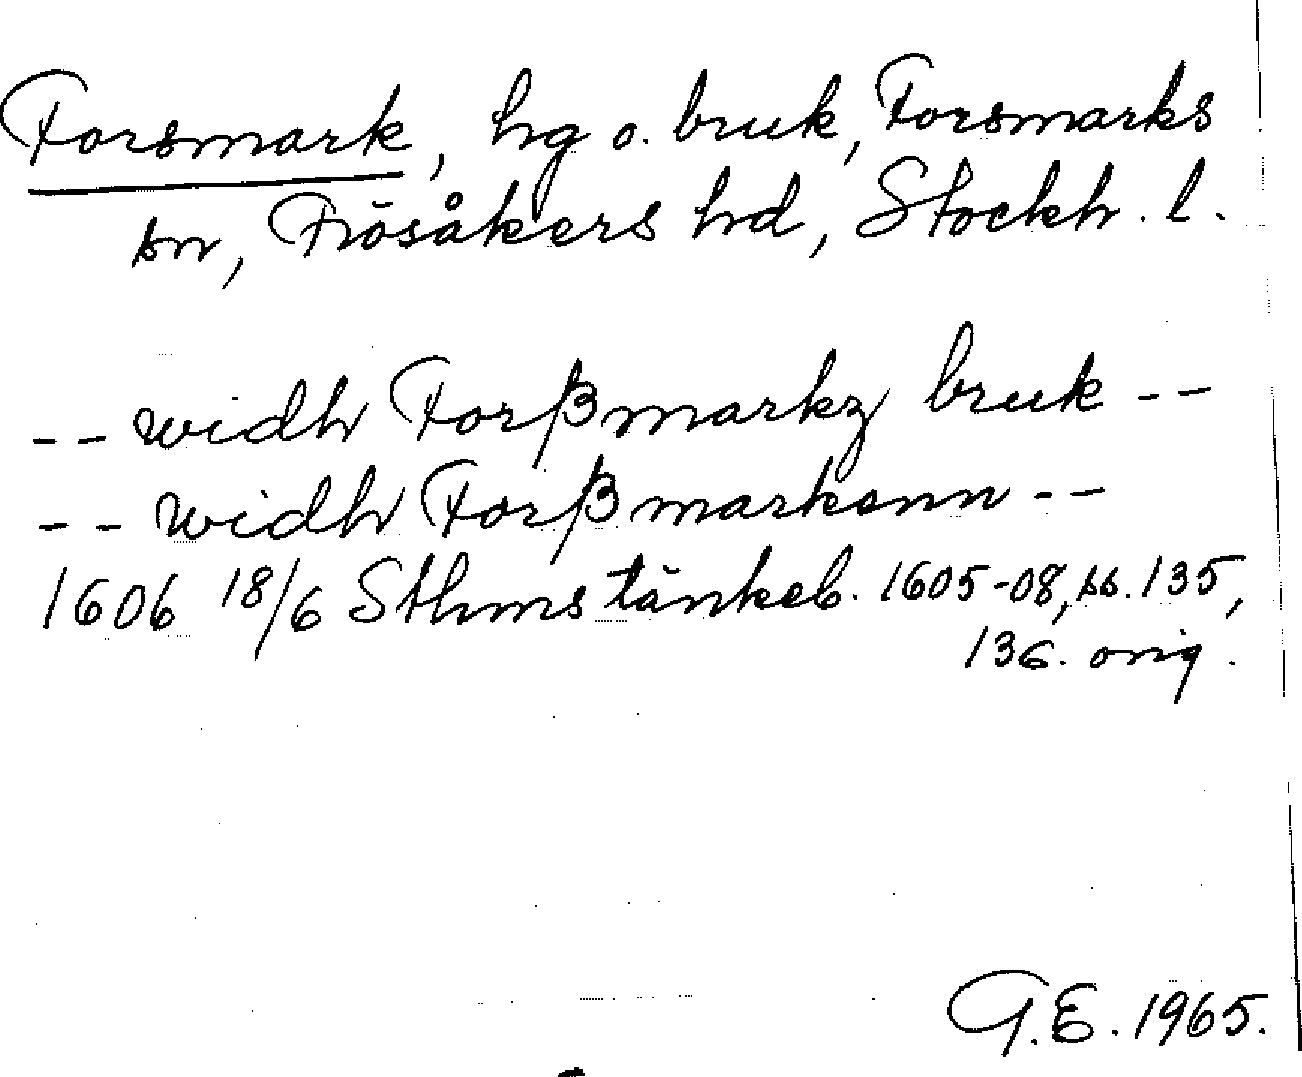 Forsmark, hg o. bruk, Forsmarks
sn, Frösåkers hd, Stockh. l.
-- widh Forßmarkz bruk --
-- widh Forßmarkenn --
1606 18/6 Sthms tänkeb. 1605-08, ss. 135,
136. orig.
G.E. 1965.